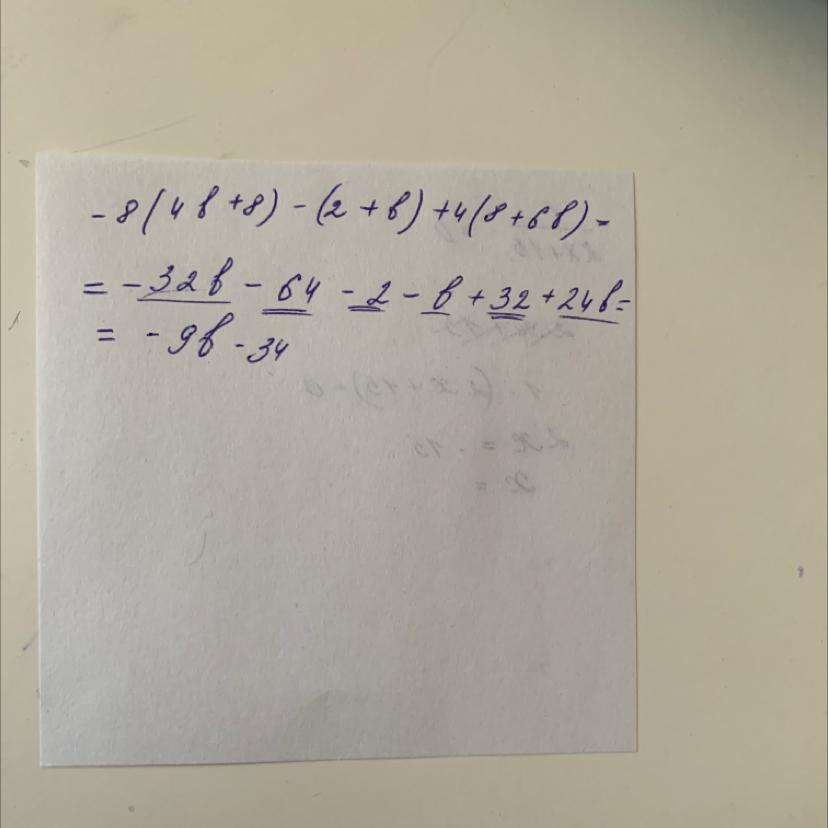 -8(4b+8)-(2+b)+4(8+6b)=
=-32b-64-2-b+32+24b=
=-9b-34